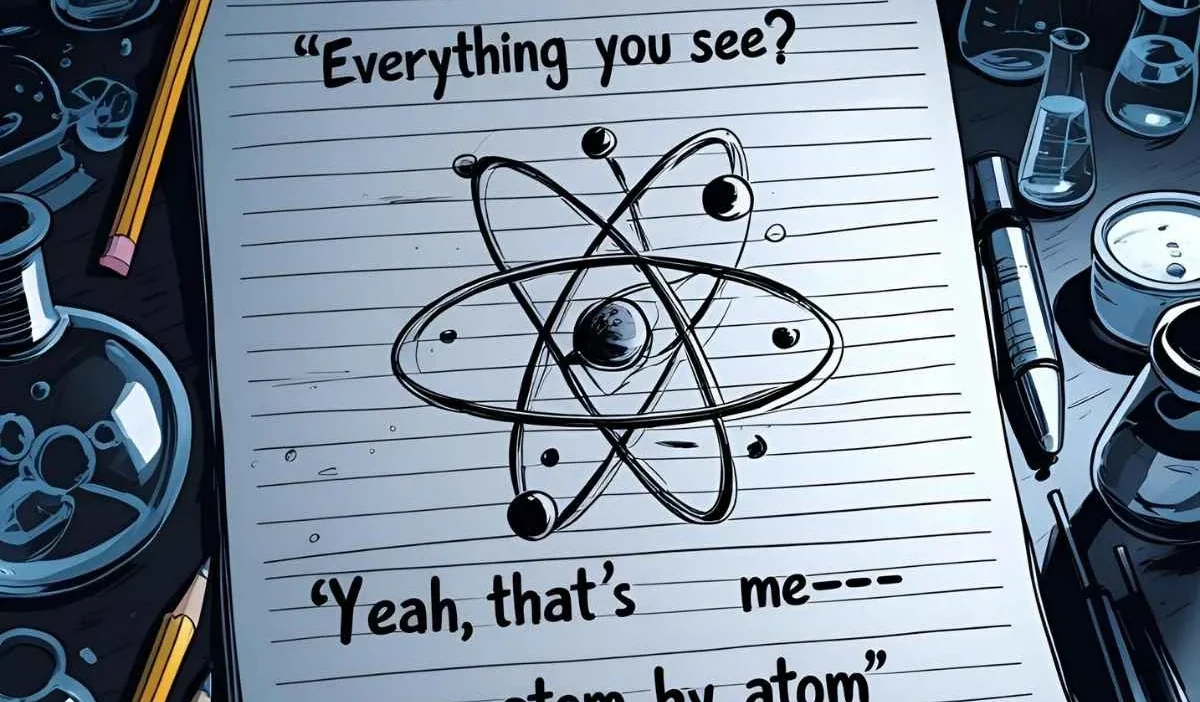 “Everything you see?
‘Yeah, that’s me---
atom by atom”